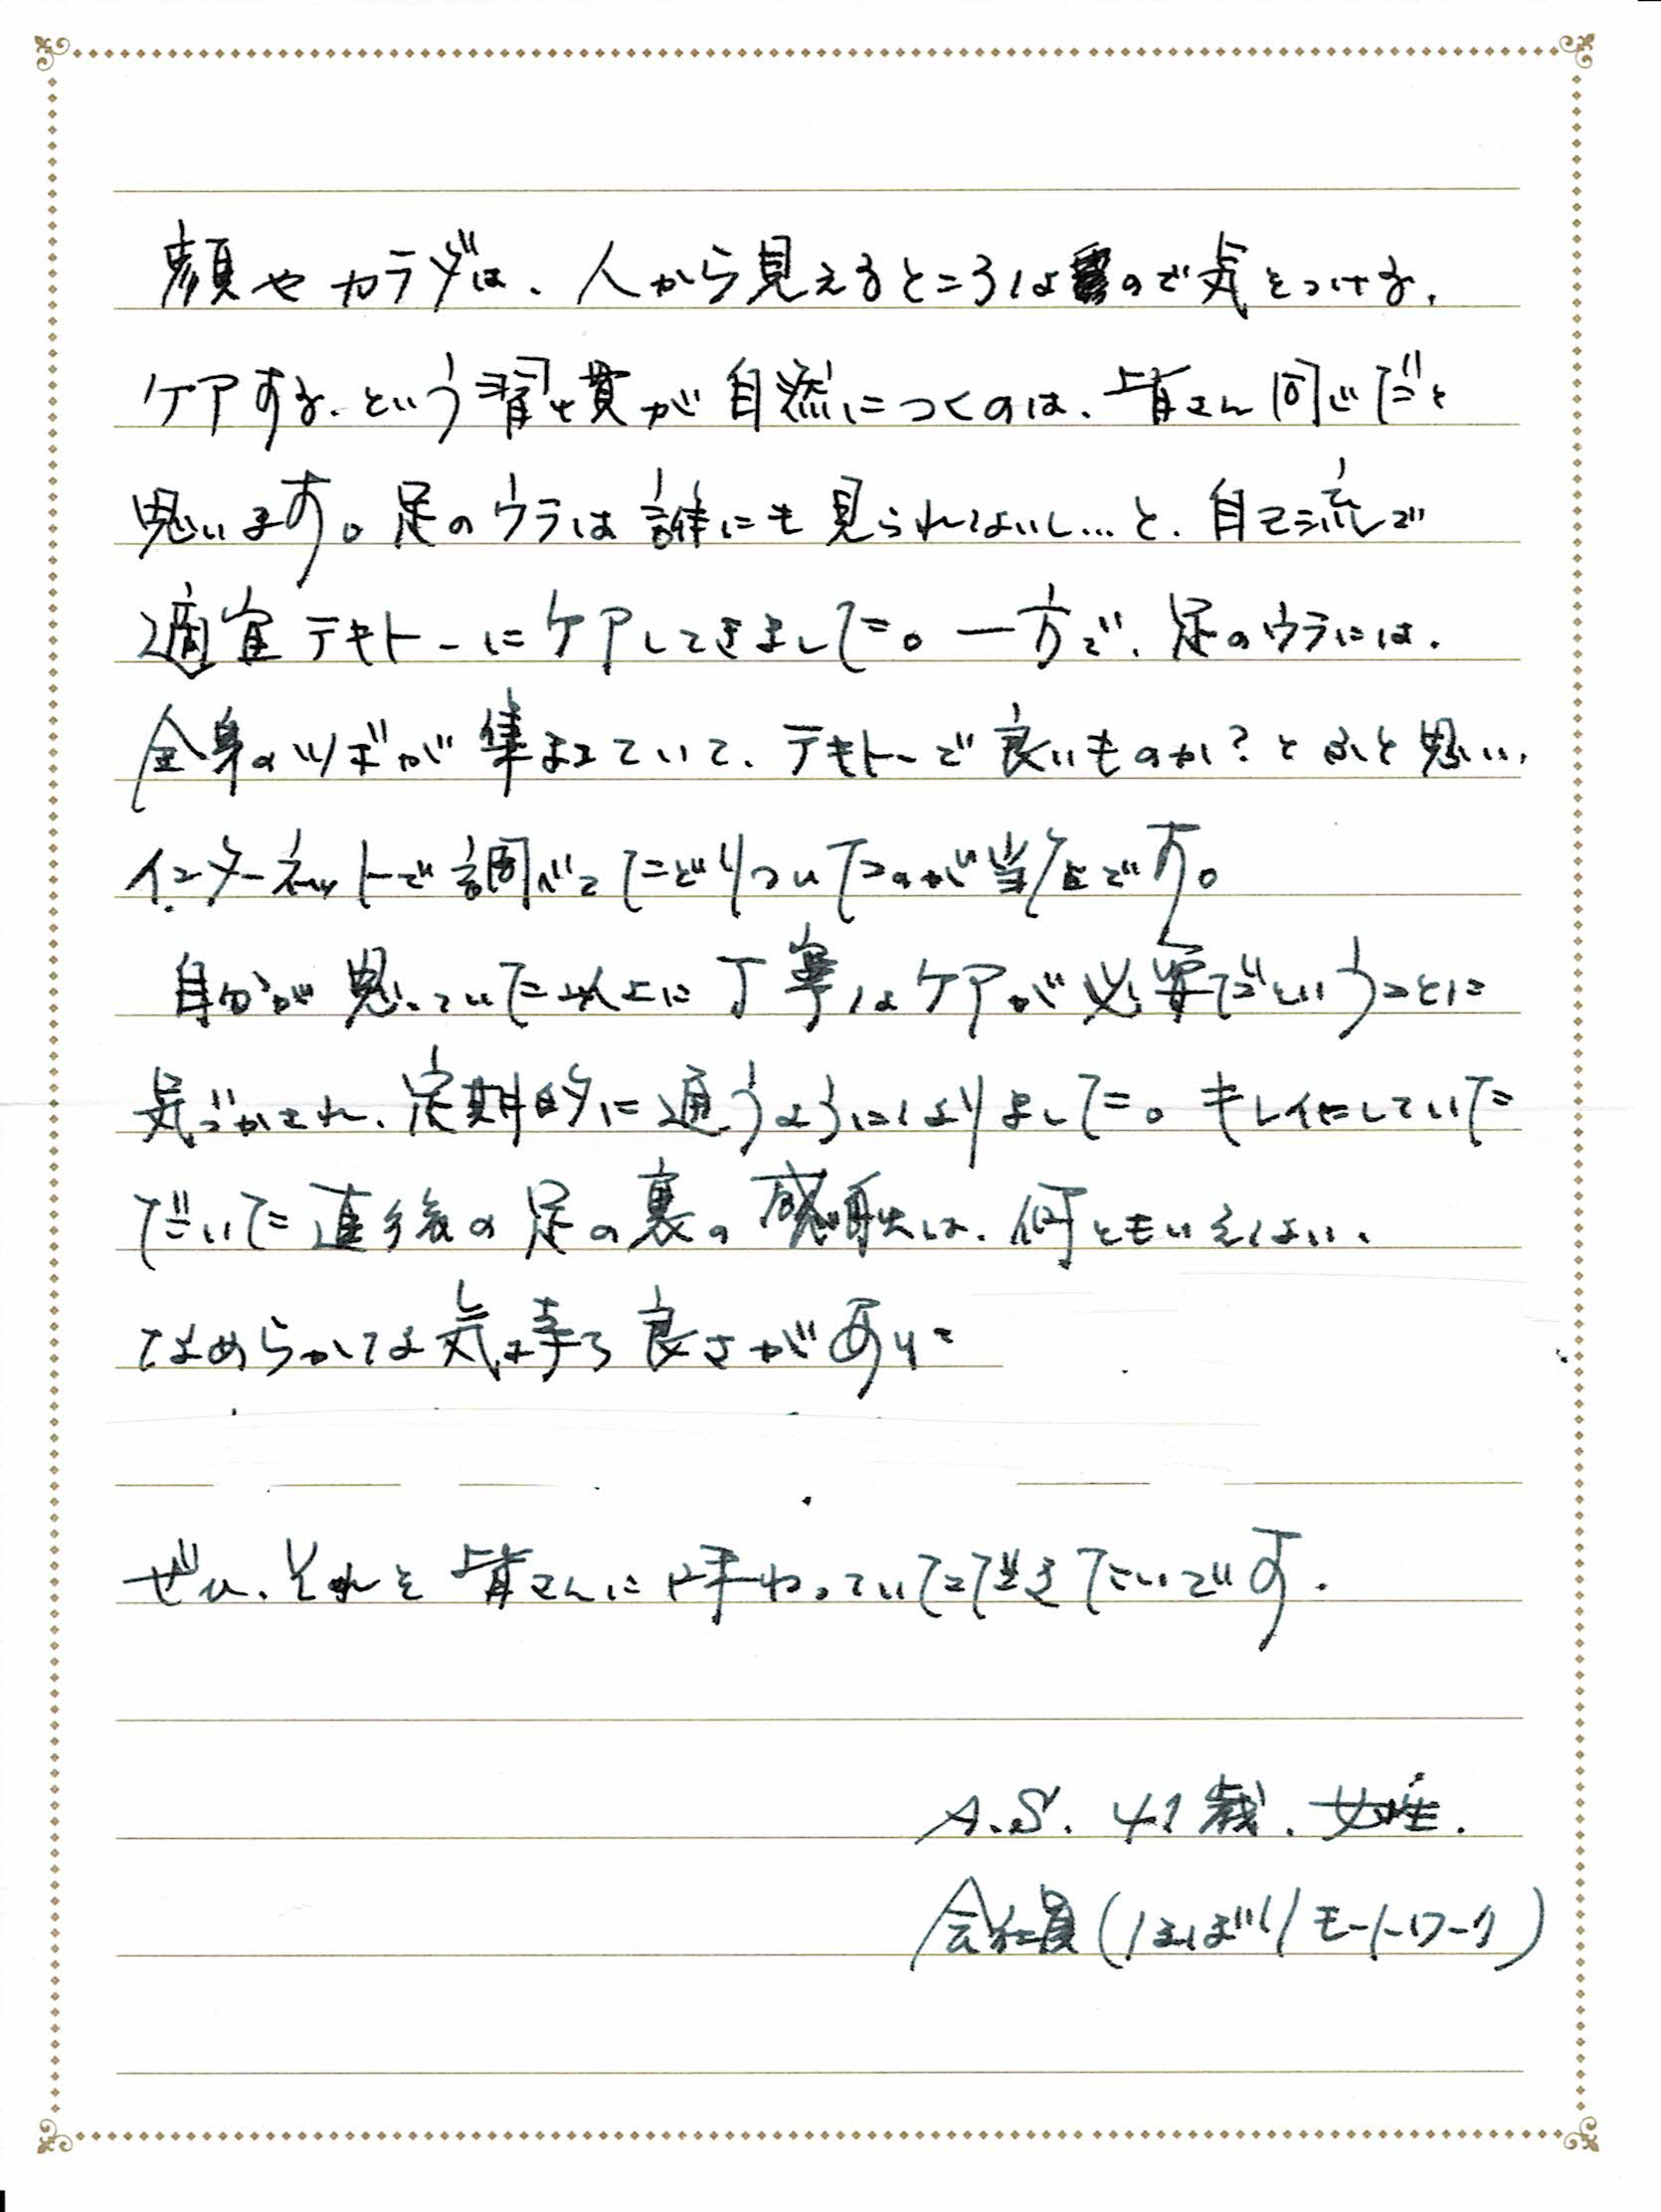 顔やカラダは、人から見えるところなので気をつける、
ケアする、という習慣が自然につくのは、皆さん同じだと
思います。足のウラは誰にも見られないし…と、自己流で
適宜テキトーにケアしてきました。一方で、足のウラには、
全身のツボが集まっていて、テキトーで良いものか?とふと思い、
インターネットで調べてたどりついたのが当店です。
自分が思っていた以上に丁寧なケアが必要だということに
気づかされ、定期的に通うようになりました。キレイにしていた
だいた直後の足の裏の感触は、何ともいえない、
なめらかな気持ち良さがあり
ぜひ、それを皆さんに味わっていただきたいです。
A.S. 41歳、女性.
会社員(ほぼリモートワーク)